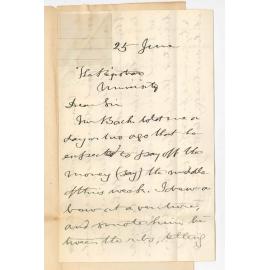 25 June
The Registrar
University
Dear Sir
Mr Bach told me a
day or two ago that he
expected to pay off the
money (say) the middle
of this week. I drew a
bow at a venture,
and smote him be
tween the ribs, telling